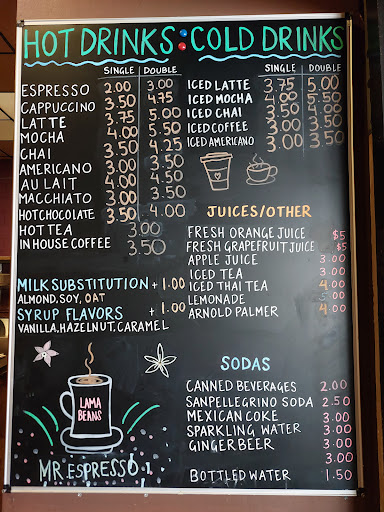 HOT DRINKS
SINGLE DOUBLE
ESPRESSO 2.00 3.00
CAPPUCCINO 3.50 4.75
LATTE 3.75 5.00
MOCHA 4.00 5.50
CHAI 3.50 4.25
AMERICANO 3.00 3.50
AU LAIT 4.00 4.50
MACCHIATO 3.00 3.50
HOT CHOCOLATE 3.50 4.00
HOT TEA 3.00
IN HOUSE COFFEE 3.50
MILK SUBSTITUTION + 1.00
ALMOND, SOY, OAT
SYRUP FLAVORS + 1.00
VANILLA, HAZELNUT, CARAMEL
LAMA
BEANS
MR. ESPRESSO
COLD DRINKS
SINGLE DOUBLE
ICED LATTE 3.75 5.00
ICED MOCHA 4.00 5.50
ICED CHAI 3.50
ICED COFFEE 3.00 3.50
ICED AMERICANO 3.00 3.50
JUICES/OTHER
FRESH ORANGE JUICE $5
FRESH GRAPEFRUIT JUICE $5
APPLE JUICE 3.00
ICED TEA 3.00
ICED THAI TEA 4.00
LEMONADE 3.00
ARNOLD PALMER 4.00
SODAS
CANNED BEVERAGES 2.00
SANPELLEGRINO SODA 2.50
MEXICAN COKE 3.00
SPARKLING WATER 3.00
GINGER BEER 3.00
3.00
BOTTLED WATER 1.50